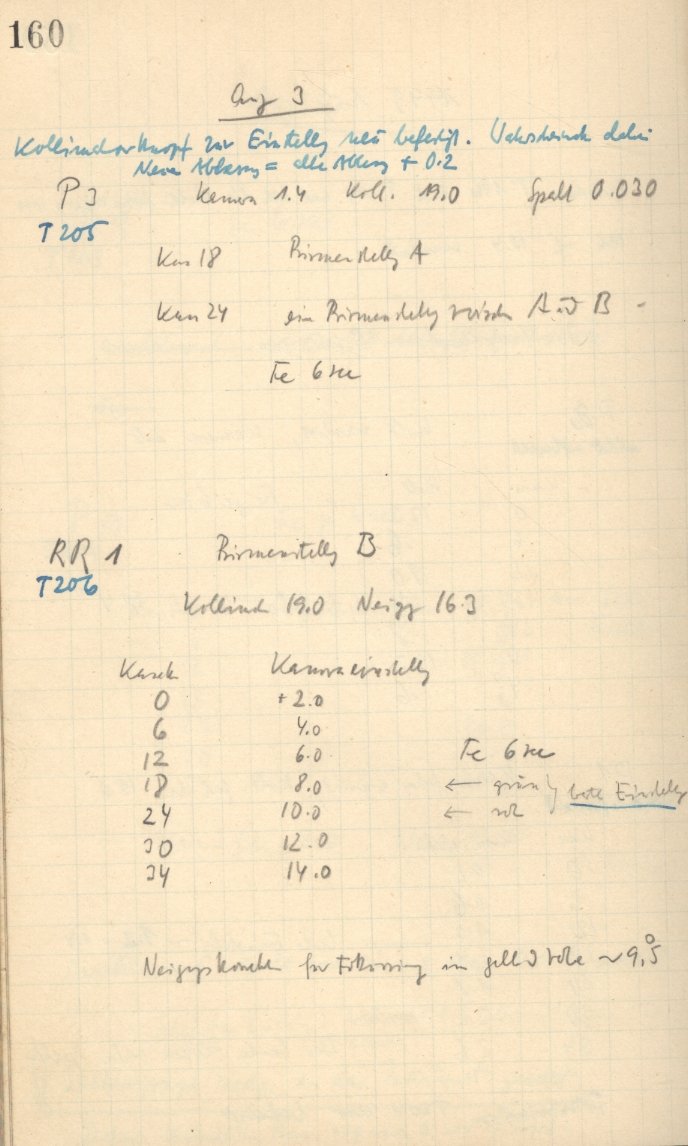 160
Aug 3
Kollimatorknopf zur Einstellg neu befestigt.
Neue Ablesung = alte Ablesg + 0.2
P 3 Kamera 1.4 Koll. 19.0 Spalt 0.030
T 205
Kas 18 Prismenstellg A
Kas 24 ein Prismenstellg zwischen A und B
Fe 6 sec
RR 1 Prismenstellg B
T 206
Kollimat 19.0 Neigg 16.3
Kasette Kameraeinstellg
0 + 2.0
6 4.0
12 6.0 Fe 6 sec
18 8.0 ← grün beste Einstellg
24 10.0 ← rot
30 12.0
34 14.0
Neigungskorrektion für Fokussierung im gelb u rot ~ 9,5°